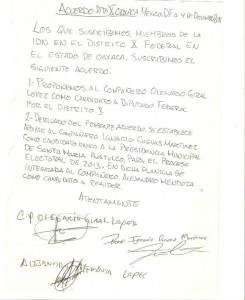 ACUERDO DTO X OAXACA MÉXICO D.F. A 4 DE DICIEMBRE
LOS QUE SUSCRIBIMOS, MIEMBROS DE LA
IDN EN EL DISTRITO X FEDERAL EN
EL ESTADO DE OAXACA, SUSCRIBIMOS EL
SIGUIENTE ACUERDO.
1- PROPONEMOS AL COMPAÑERO OLEGARIO GIRAL
LOPEZ COMO CANDIDATO A DIPUTADO FEDERAL
POR EL DISTRITO X
2- DERIVADO DEL PRESENTE ACUERDO SE ESTABLECE
AL COMPAÑERO IGNACIO CUEVAS MARTINEZ
COMO CANDIDATO UNICO A LA PRESIDENCIA MUNICIPAL
DE SANTA MARIA HUATULCO, PARA EL PROCESO
ELECTORAL DE 2013. EN DICHA PLANILLA SE
INTEGRARA AL COMPAÑERO ALEJANDRO MENDOZA
COMO CANDIDATO A REGIDOR
ATENTAMENTE
C.P. OLEGARIO GIRAL LOPEZ
Ignacio Cuevas Martinez
ALEJANDRO MENDOZA LOPEZ